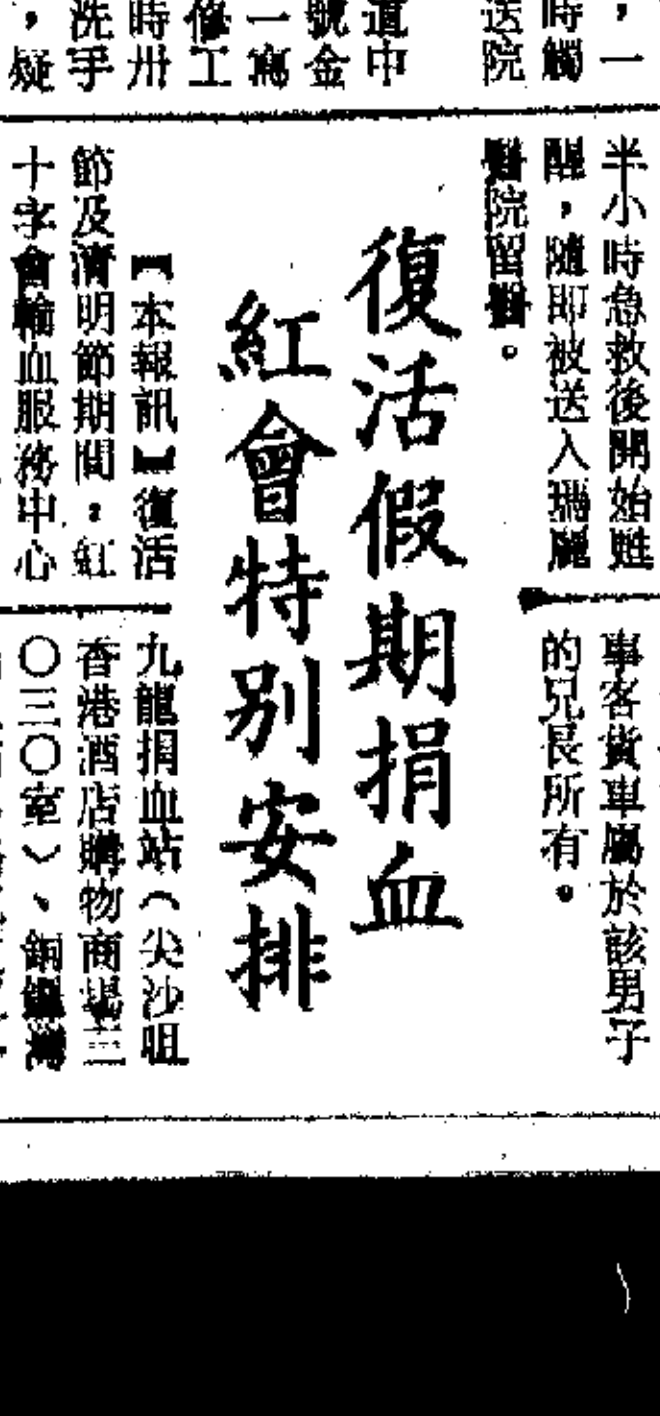 ，一
時觸
送院
道中
號金
一寫
修工
時卅
洗手
，疑
半小時急救後開始甦
醒，隨即被送入瑪麗
醫院留醫。
事客貨車屬於該男子
的兄長所有。
復活假期捐血
紅會特別安排
【本報訊】復活
節及清明節期間，紅
十字會輸血服務中心
九龍捐血站（尖沙咀
香港酒店購物商場三
〇三〇室）、銅鑼灣